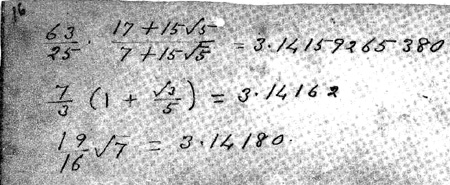 16
63/25 · (17 + 15√5)/(7 + 15√5) = 3.14159265380
7/3 (1 + √3/5) = 3.14162
19/16 √7 = 3.14180.